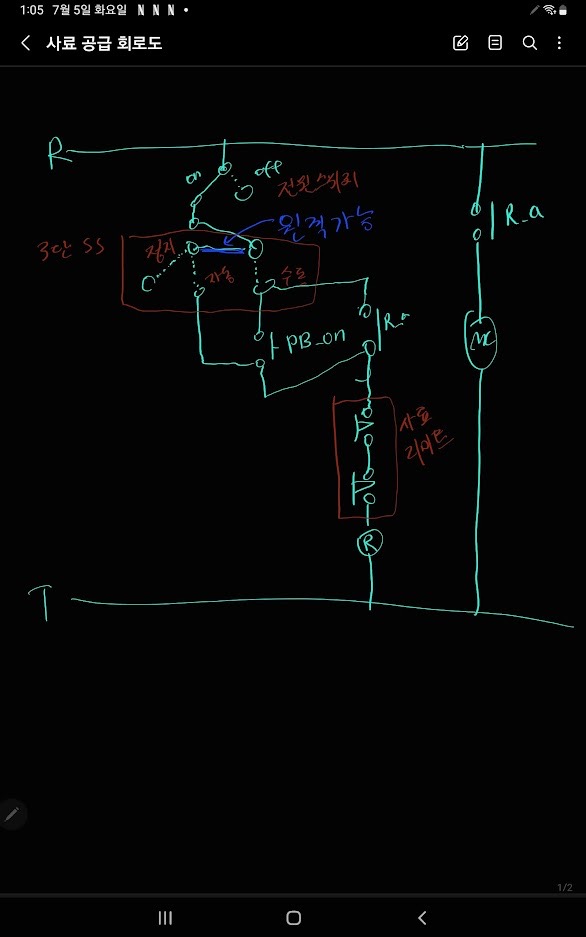 1:05 7월 5일 화요일 N N N •
사료 공급 회로도
R
on
off
전원스위치
원적가능
3단 SS
정지
자동
수동
R_a
PB_on
R_a
MC
사료
리미트
R
T
1/2